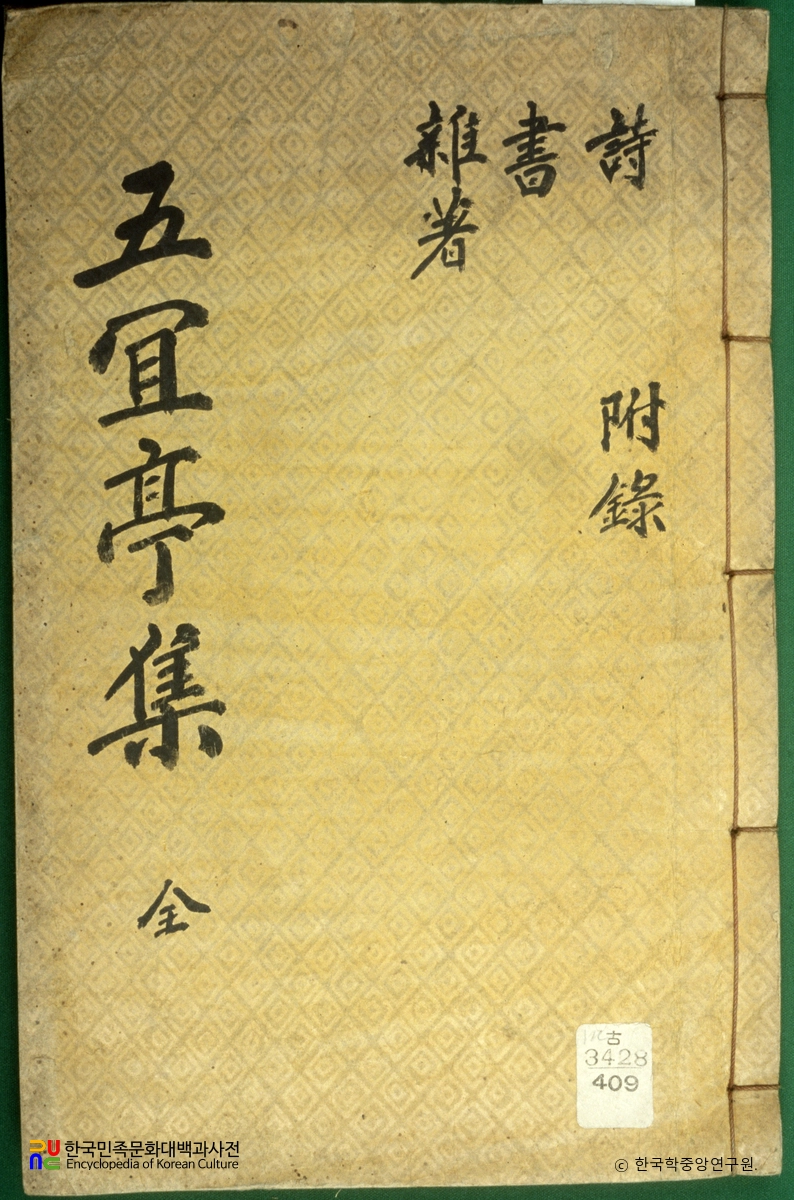 詩 附錄
書
雜著
五冝亭集 全
古
3428
409
한국민족문화대백과사전
Encyclopedia of Korean Culture
© 한국학중앙연구원.